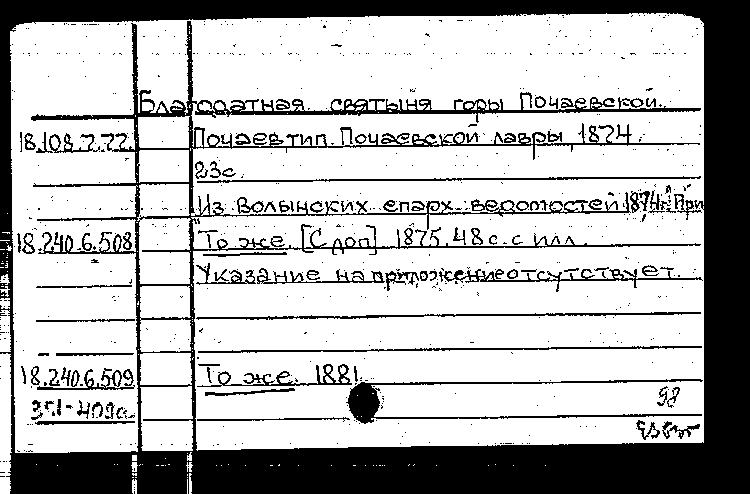 Благодатная святыня горы Почаевской.
18.108.7.72. Почаев тип. Почаевской лавры, 1874.
23с.
Из Волынских епарх. ведомостей 1874г. При
18.240.6.508 То же. [С доп] 1875. 48 с. с илл.
Указание на приложение отсутствует.
18.240.6.509 То же. 1881.
98